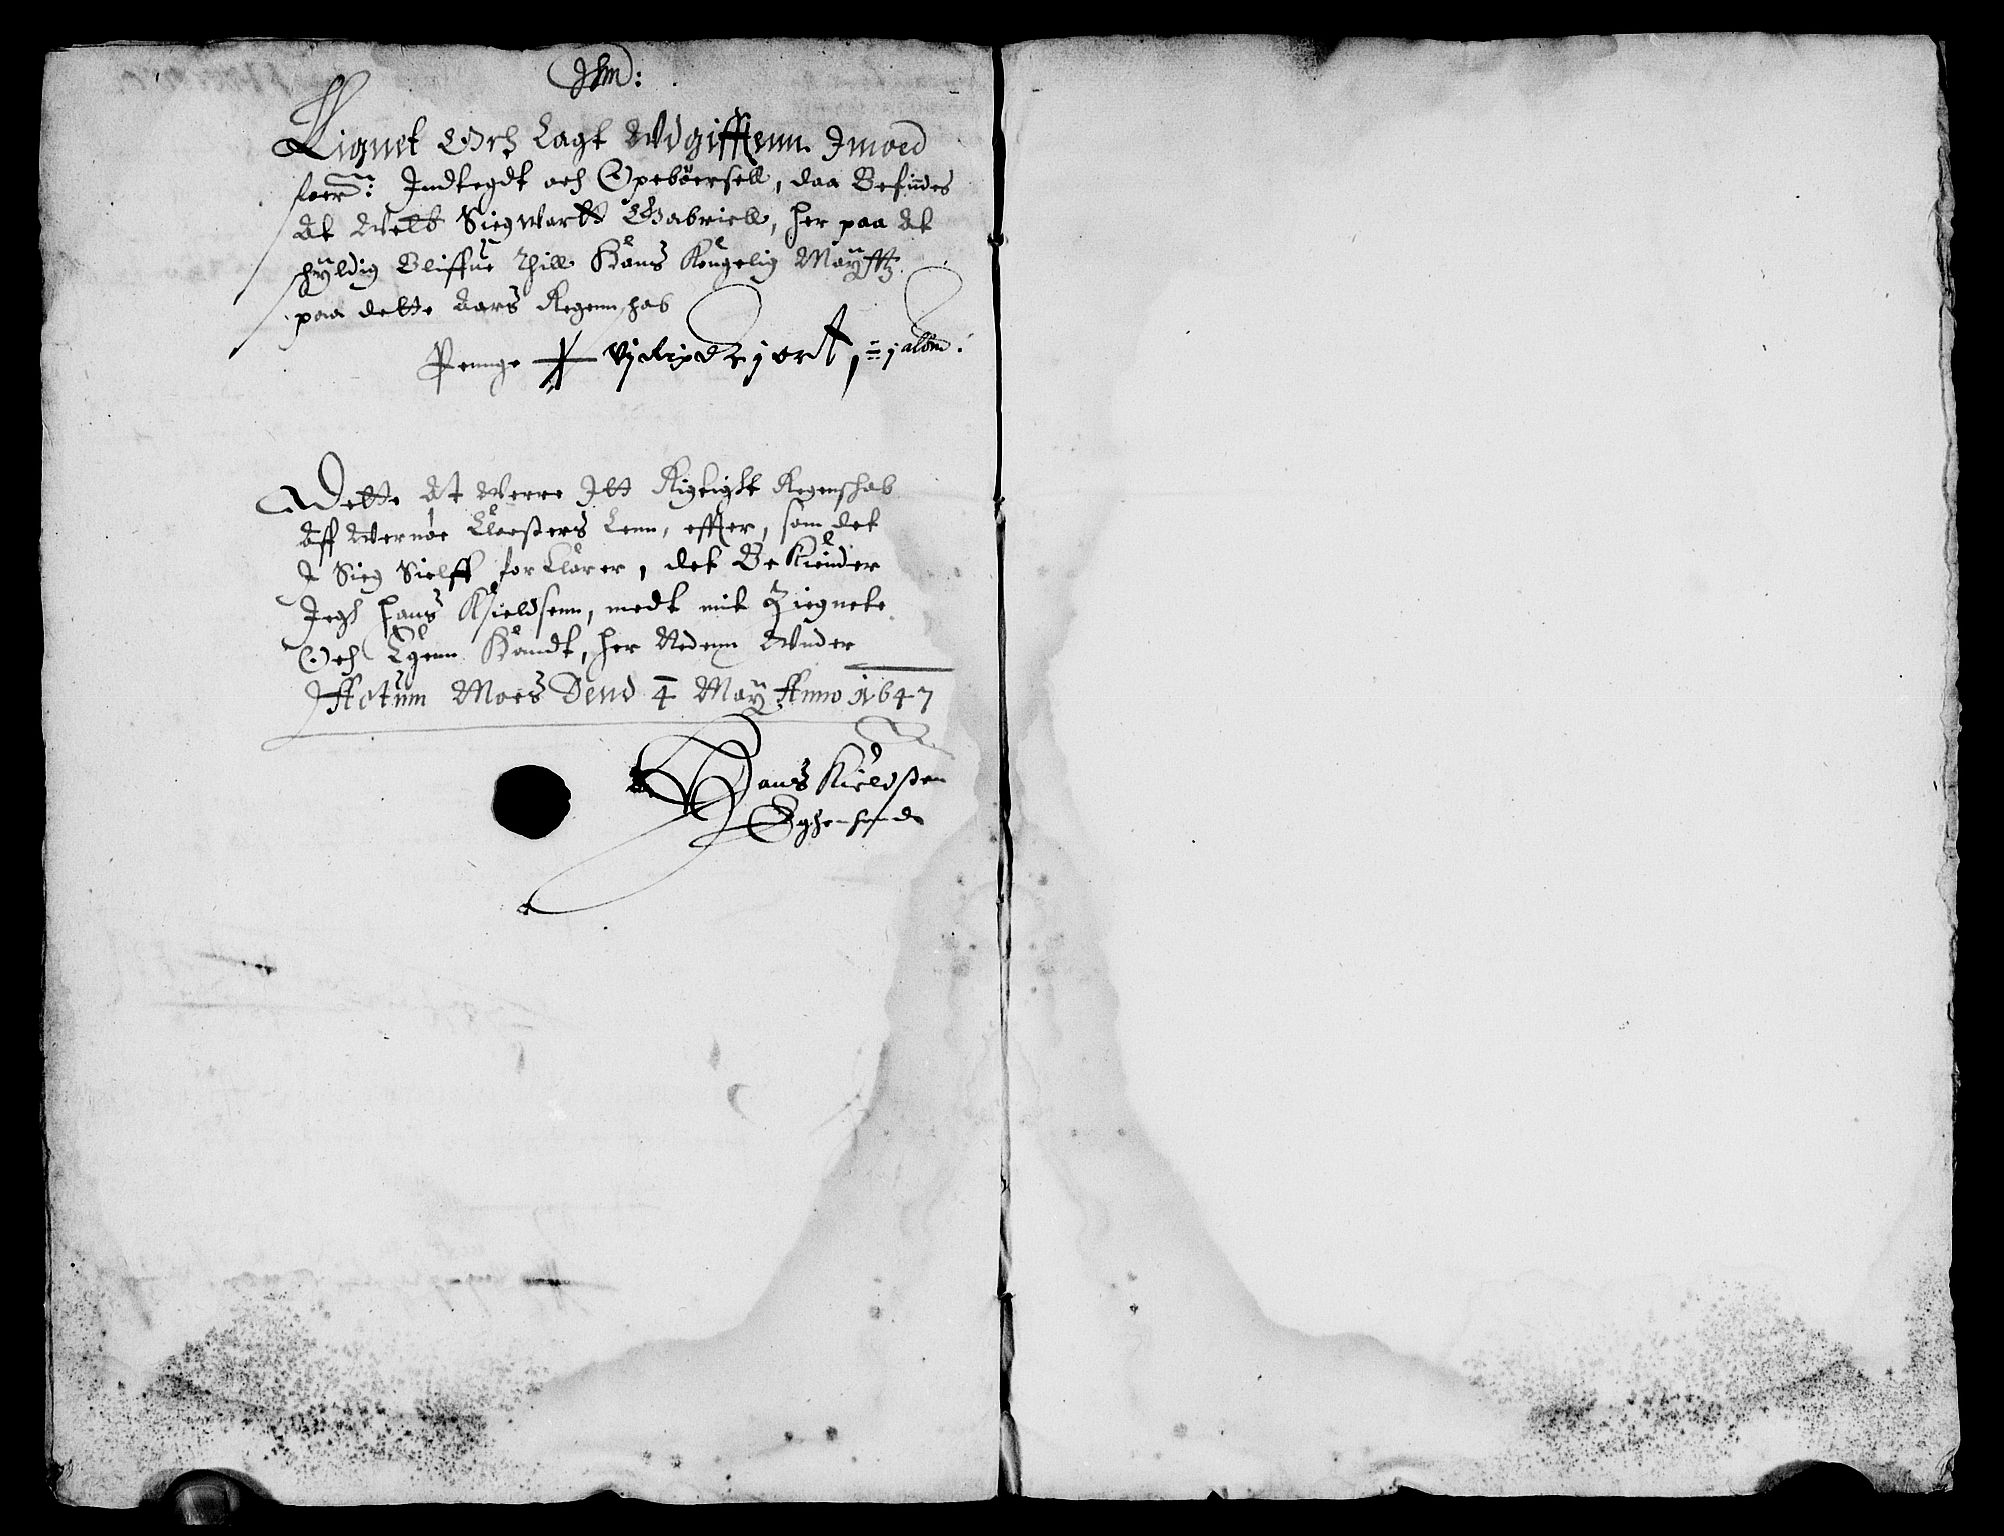 Lignet Och Lagt Wdgifftenn Jmoed
foer:n Indtegdt och Opebøersell, daa Befindes
At Welb Siegwartt Gabriell, her paa At
schÿldig Bliffue Thill Hans Kongelig Mayttz
paa dette Aars Regennschab
Pennge vj Rixdr j ort, j
Dette At Werre Itt Rigtight Regenschab
Aff Wernøe Closters Lenn, effter, som det
I Sieg Sielff forklarer, det BeKiender
Jegh Hans Kieldsenn, medt mit Ziegnete
Och Egenn Handt, her Nedenn Wnder
Actum Moes Dend 4 May Anno 1647
Hans Kieldßen
Eghenhandt